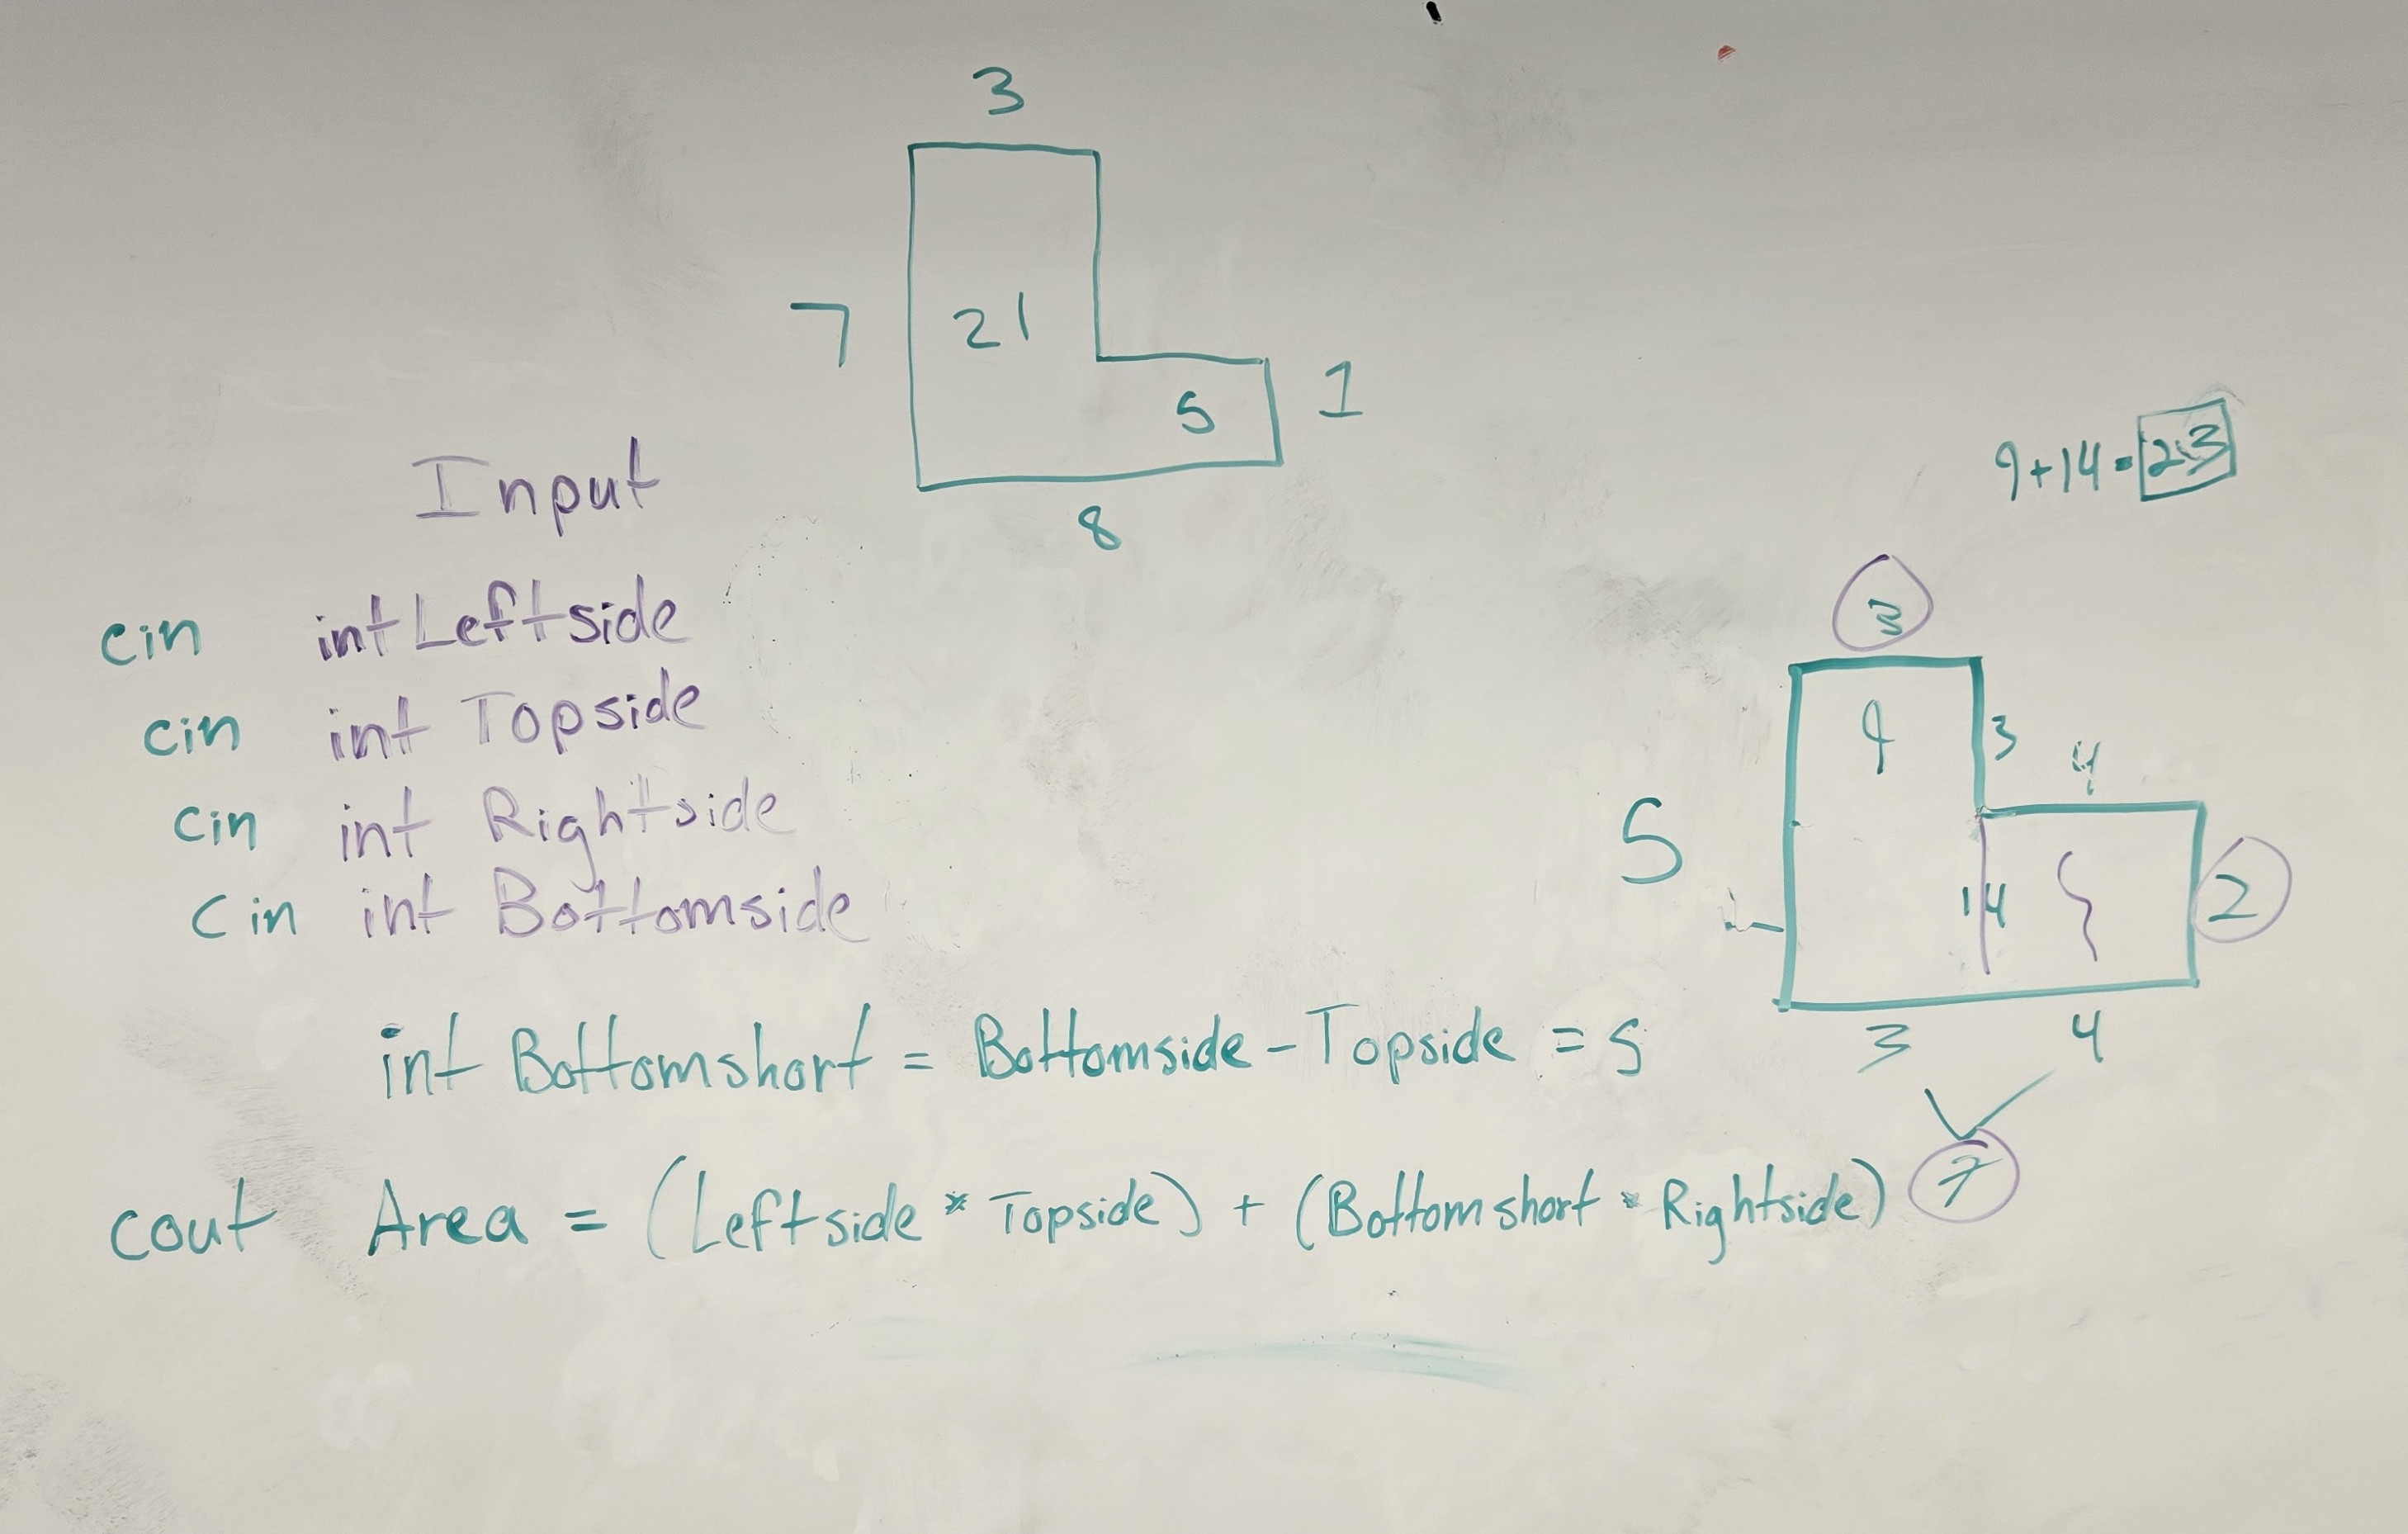 3
7
21
5
1
8
Input
cin int Leftside
cin int Topside
cin int Rightside
cin int Bottomside
int Bottomshort = Bottomside - Topside = 5
cout Area = (Leftside * Topside) + (Bottomshort * Rightside)
9+14=23
3
9
3
4
5
14
2
3
4
7